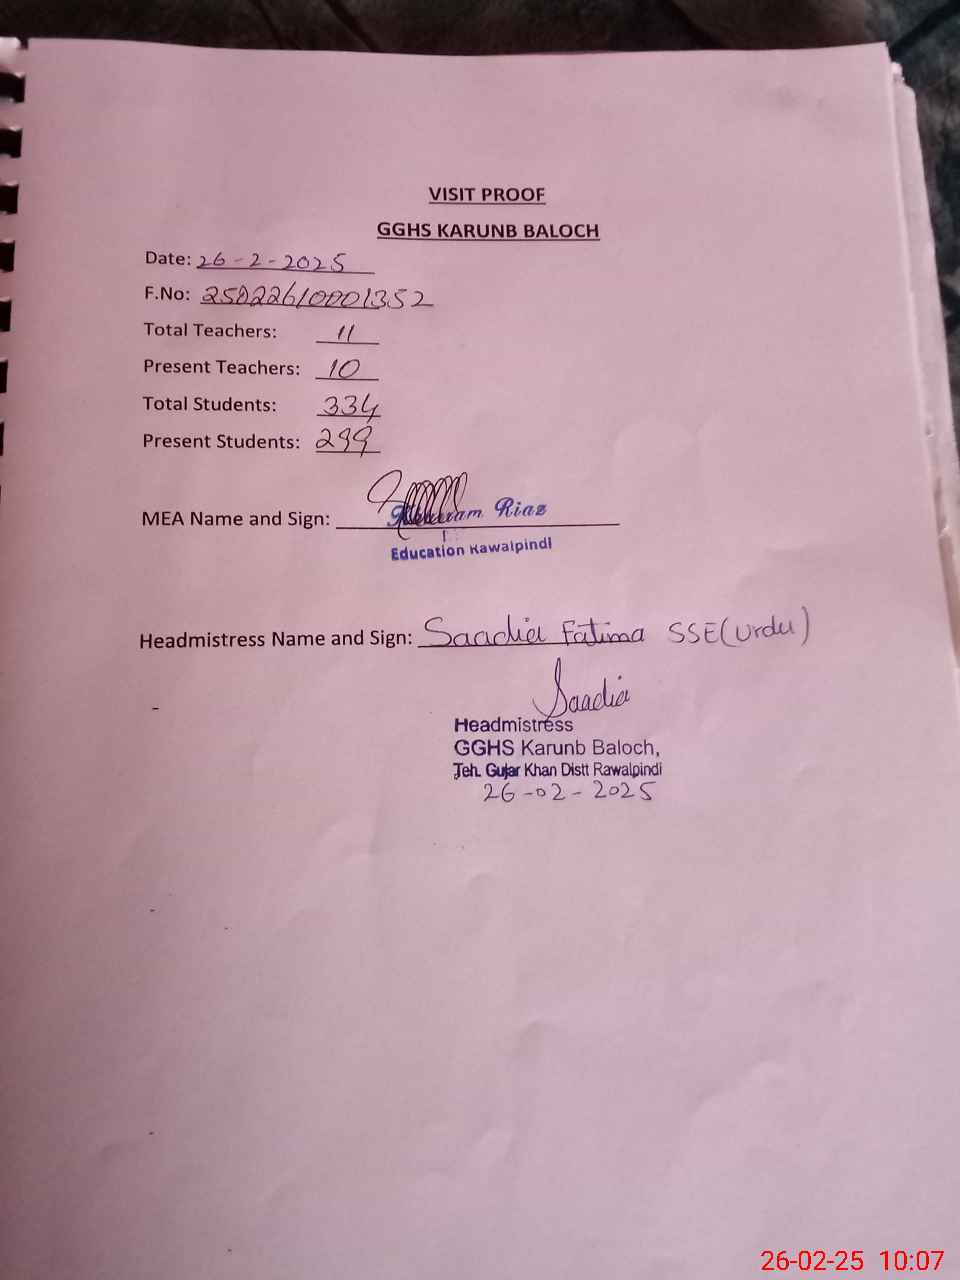 VISIT PROOF
GGHS KARUNB BALOCH
Date: 26-2-2025
F.No: 25022610001352
Total Teachers: 11
Present Teachers: 10
Total Students: 334
Present Students: 299
MEA Name and Sign: Riaz
Education Rawalpindi
Headmistress Name and Sign: Saadia Fatima SSE(Urdu)
Saadia
Headmistress
GGHS Karunb Baloch,
Teh. Gujar Khan Distt Rawalpindi
26-02-2025
26-02-25 10:07